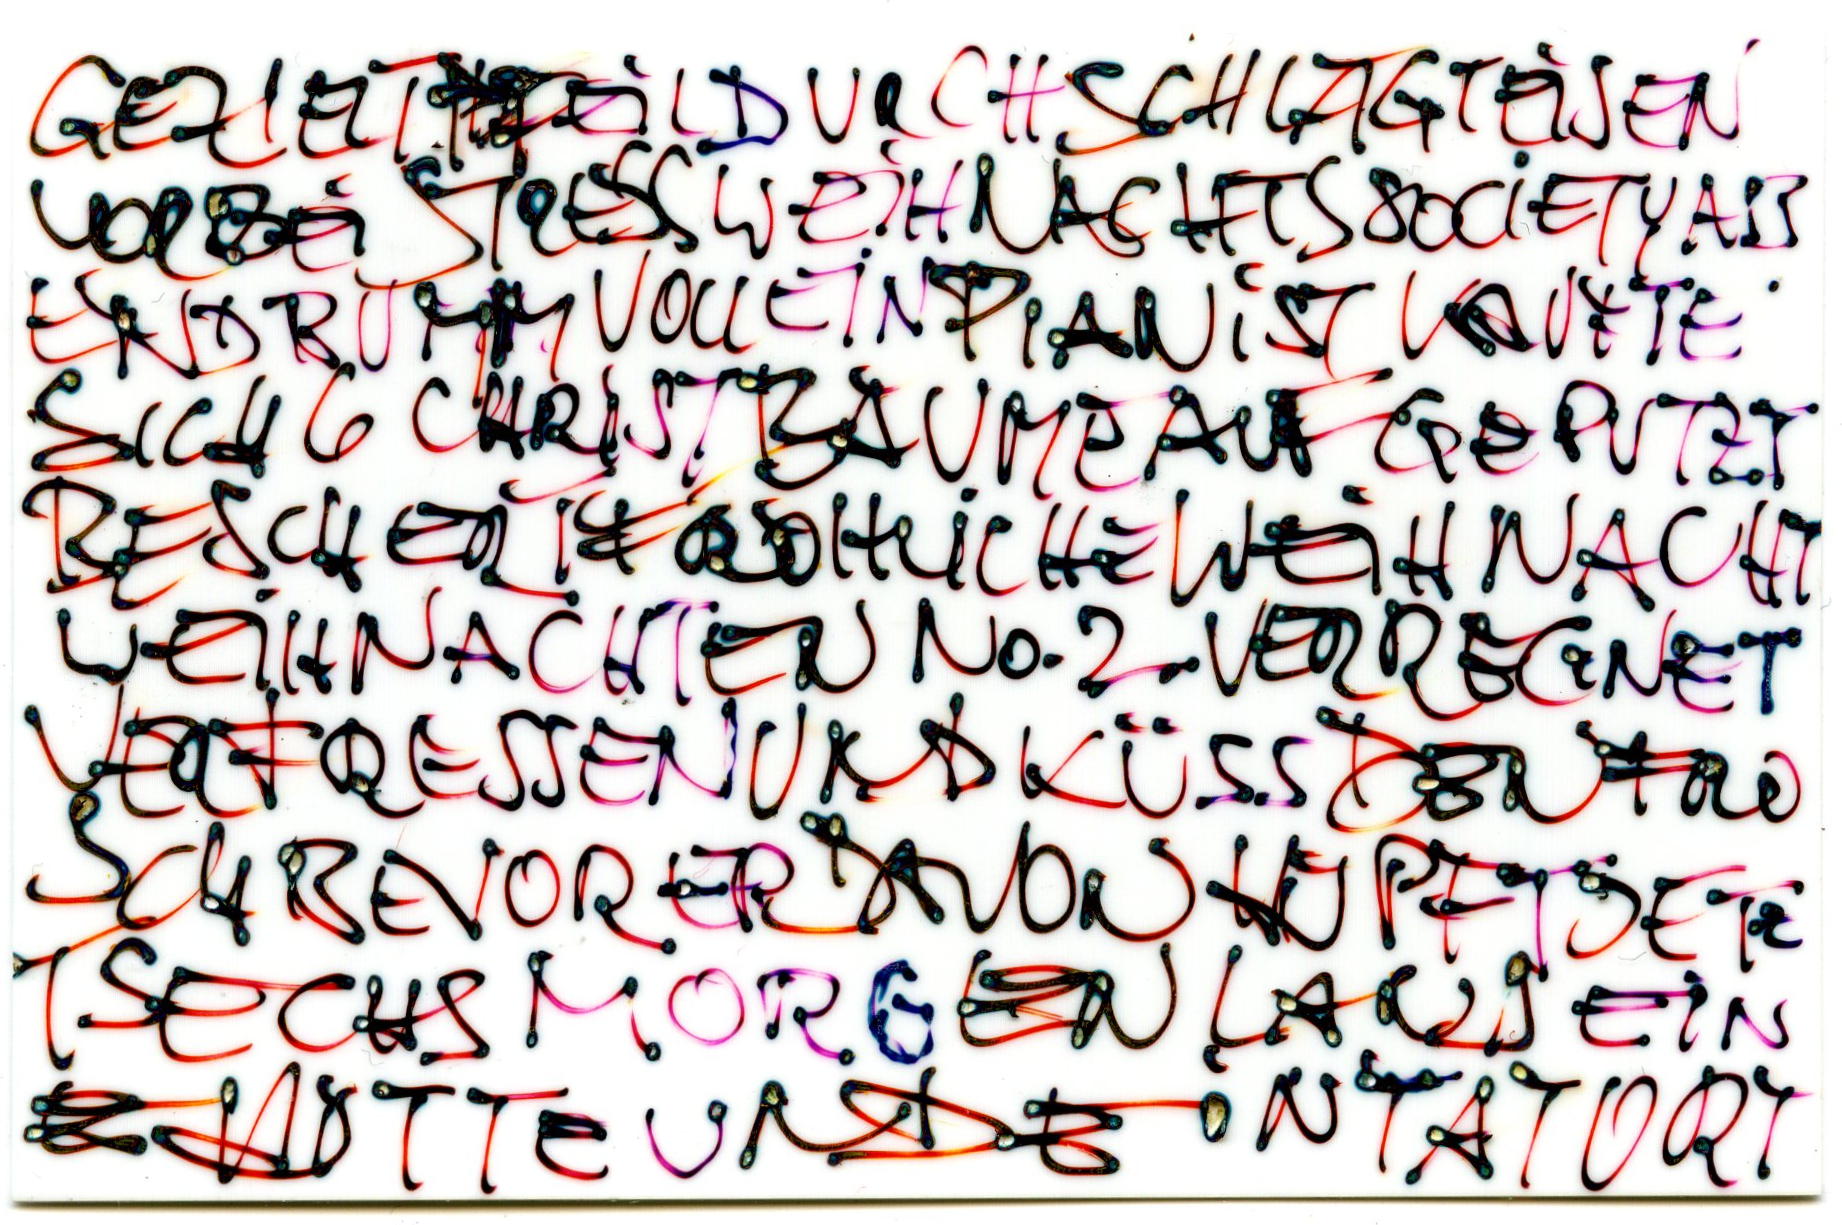 GEZIELT PFEIL DURCHSCHLÄGT EISEN
VORBEI STRESS WEIHNACHTSSOCIETY ABB
END BRUMM VOLL EIN PIANIST KAUFTE
SICH 6 CHRISTBÄUME AUFGEPUTZT
BESCHERTE FRÖHLICHE WEIHNACHT
WEIHNACHTEN No. 2 VERREGNET
VERFRESSEN UND KÜSS DEN FRO
SCH BEVOR ER DAVON HÜPFT SETZ
T SECHS MORGEN LANG EIN
E HÜTTE UND EIN TATORT